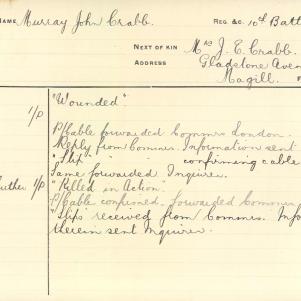 NAME Murray John Crabb. REG &c. 10th Batt
NEXT OF KIN Mrs J. E. Crabb.
ADDRESS Gladstone Aven
Magill.
1/p "Wounded".
P/Cable forwarded Commrs London.
Reply from Commrs. Information sent
"Slip" " " confirming cable
Same forwarded Inquirer.
urther 1/p "Killed in Action".
P/Cable confirmed. Forwarded Commrs
"Slip" received from Commrs. Info
therein sent Inquirer.